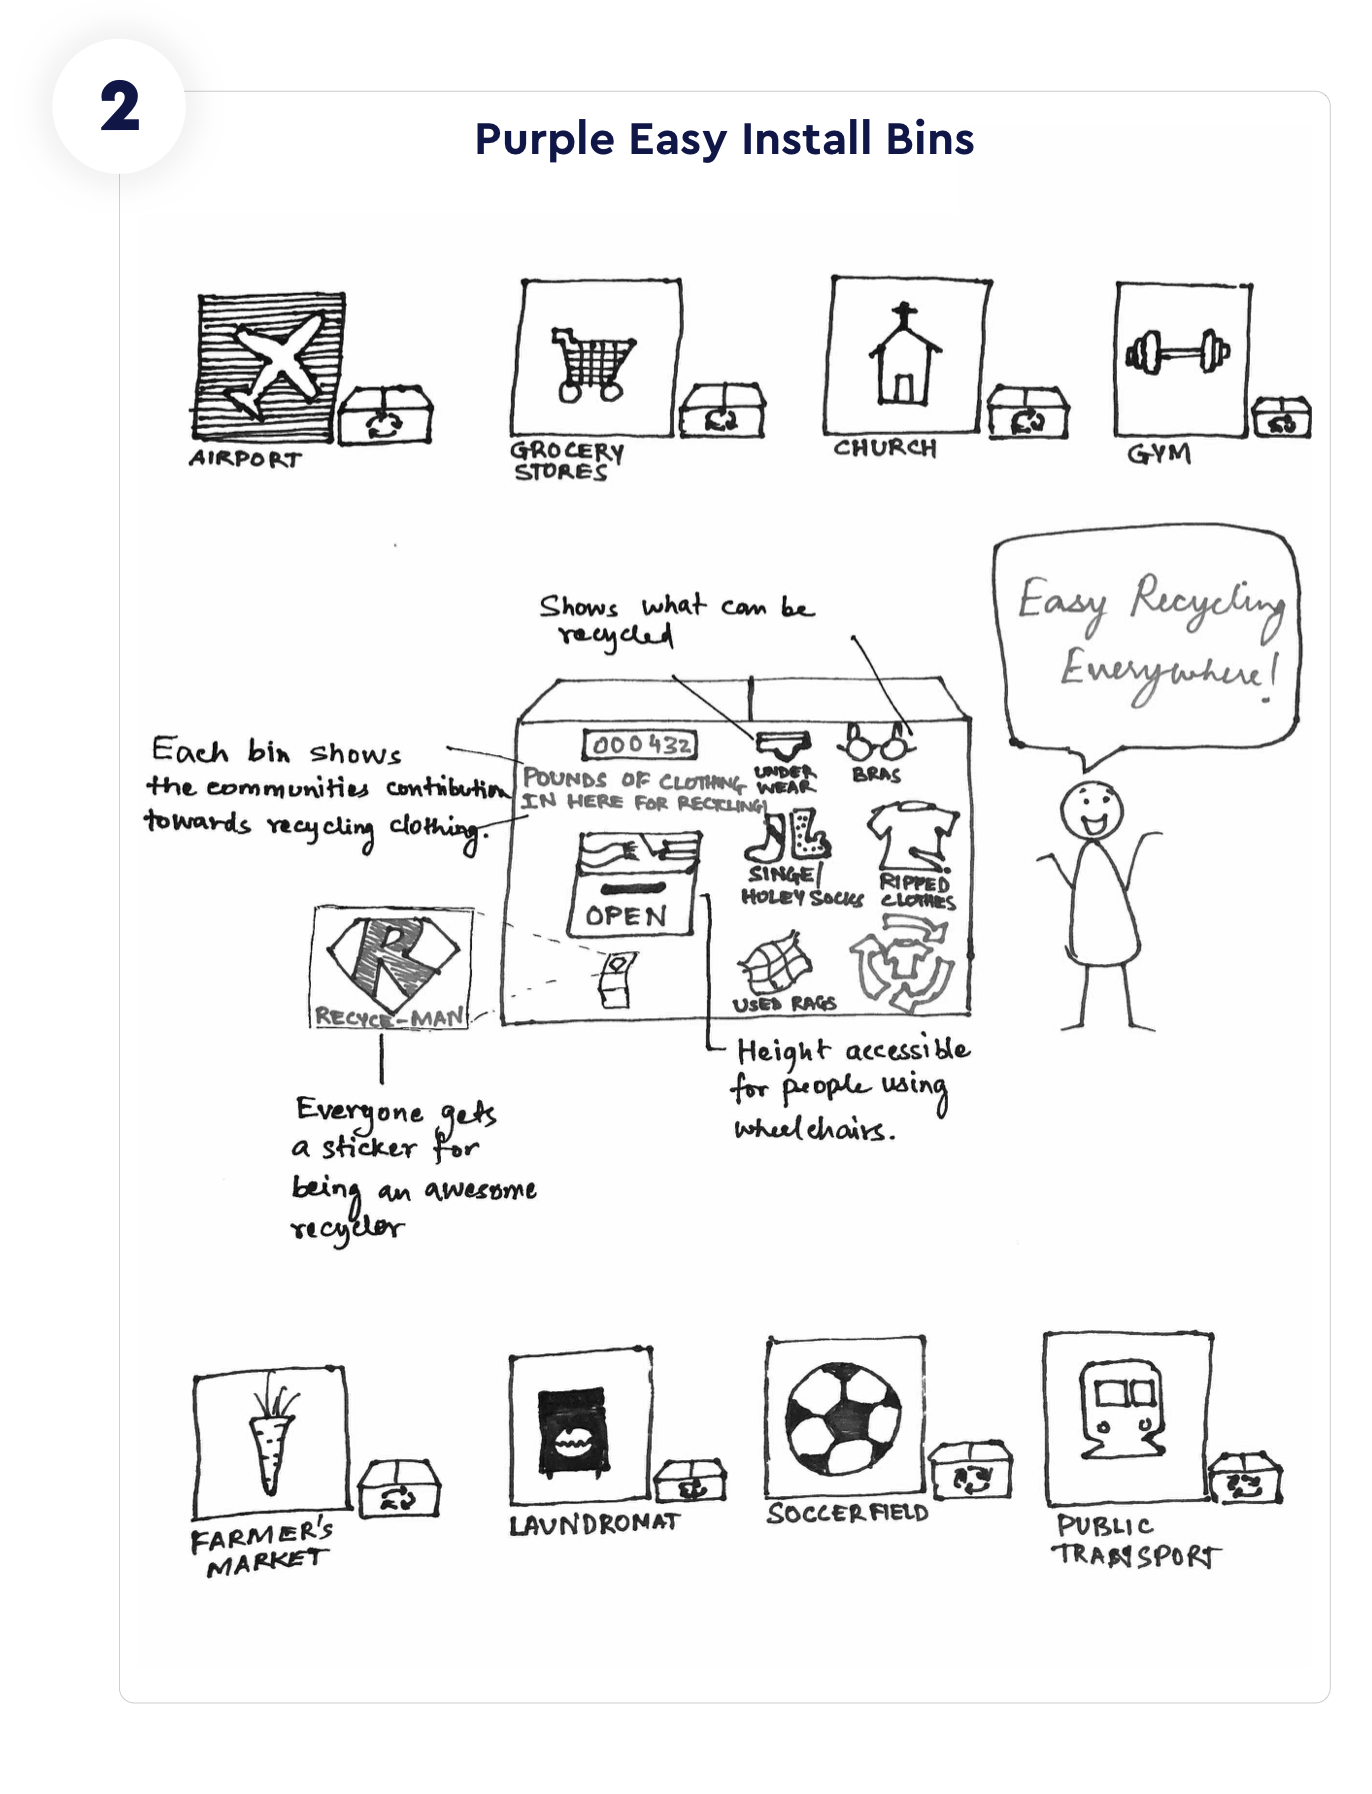 2
Purple Easy Install Bins
AIRPORT
GROCERY
STORES
CHURCH
GYM
Easy Recycling
Everywhere!
Shows what can be
recycled
Each bin shows
the communities contribution
towards recycling clothing.
000432
POUNDS OF CLOTHING
IN HERE FOR RECYLING!
UNDER
WEAR
BRAS
SINGE/
HOLEY SOCKS
RIPPED
CLOTHES
OPEN
USED RAGS
R
RECYCE-MAN
Height accessible
for people using
wheelchairs.
Everyone gets
a sticker for
being an awesome
recycler
FARMER'S
MARKET
LAUNDROMAT
SOCCER FIELD
PUBLIC
TRANSPORT